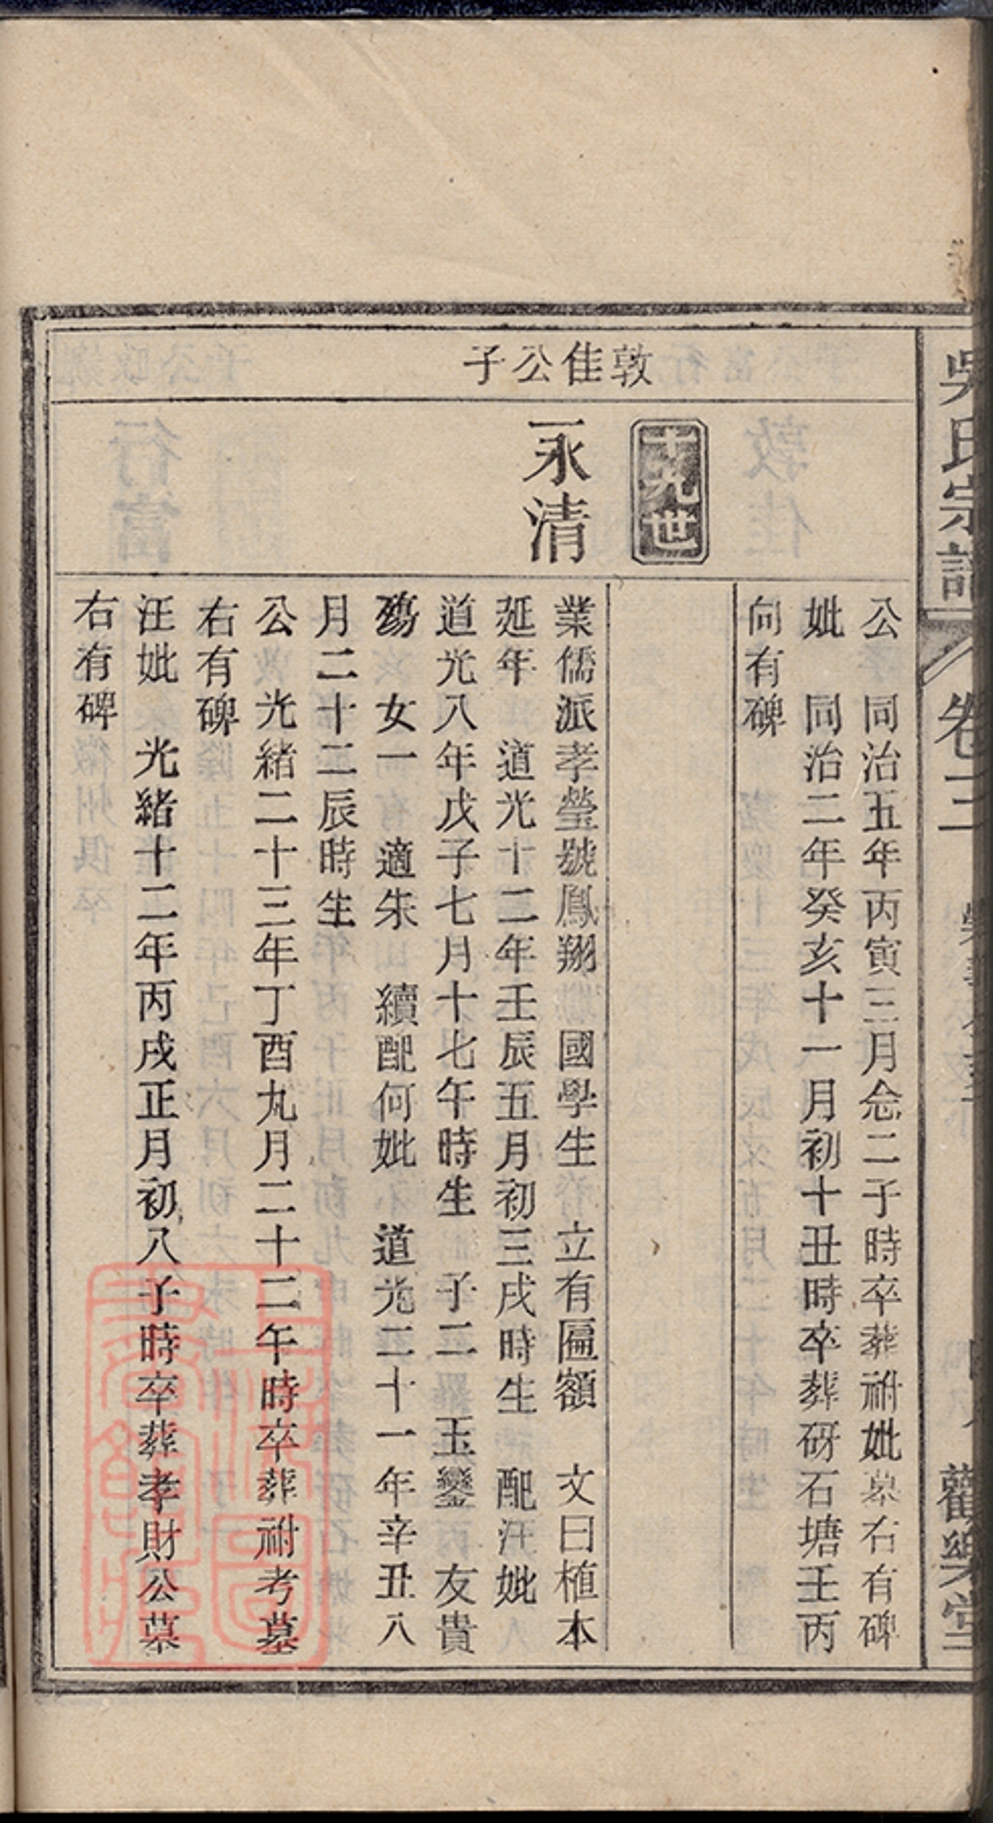 吳氏宗譜
卷二
觀樂堂
公　同治五年丙寅三月念二子時卒葬祔妣墓右有碑
妣　同治二年癸亥十一月初十丑時卒葬硏石塘壬丙
向有碑
十九世
敦佳公子
永清
業儒派孝瑩號鳳翔　國學生　立有匾額　文曰植本
延年　道光十二年壬辰五月初三戌時生　配汪妣
道光八年戊子七月十七午時生　子二　玉鑾　友貴
殤　女一　適朱　續配何妣　道光二十一年辛丑八
月二十二辰時生
公　光緒二十三年丁酉九月二十二午時卒葬祔考墓
右有碑
汪妣　光緒十二年丙戌正月初八子時卒葬孝財公墓
右有碑